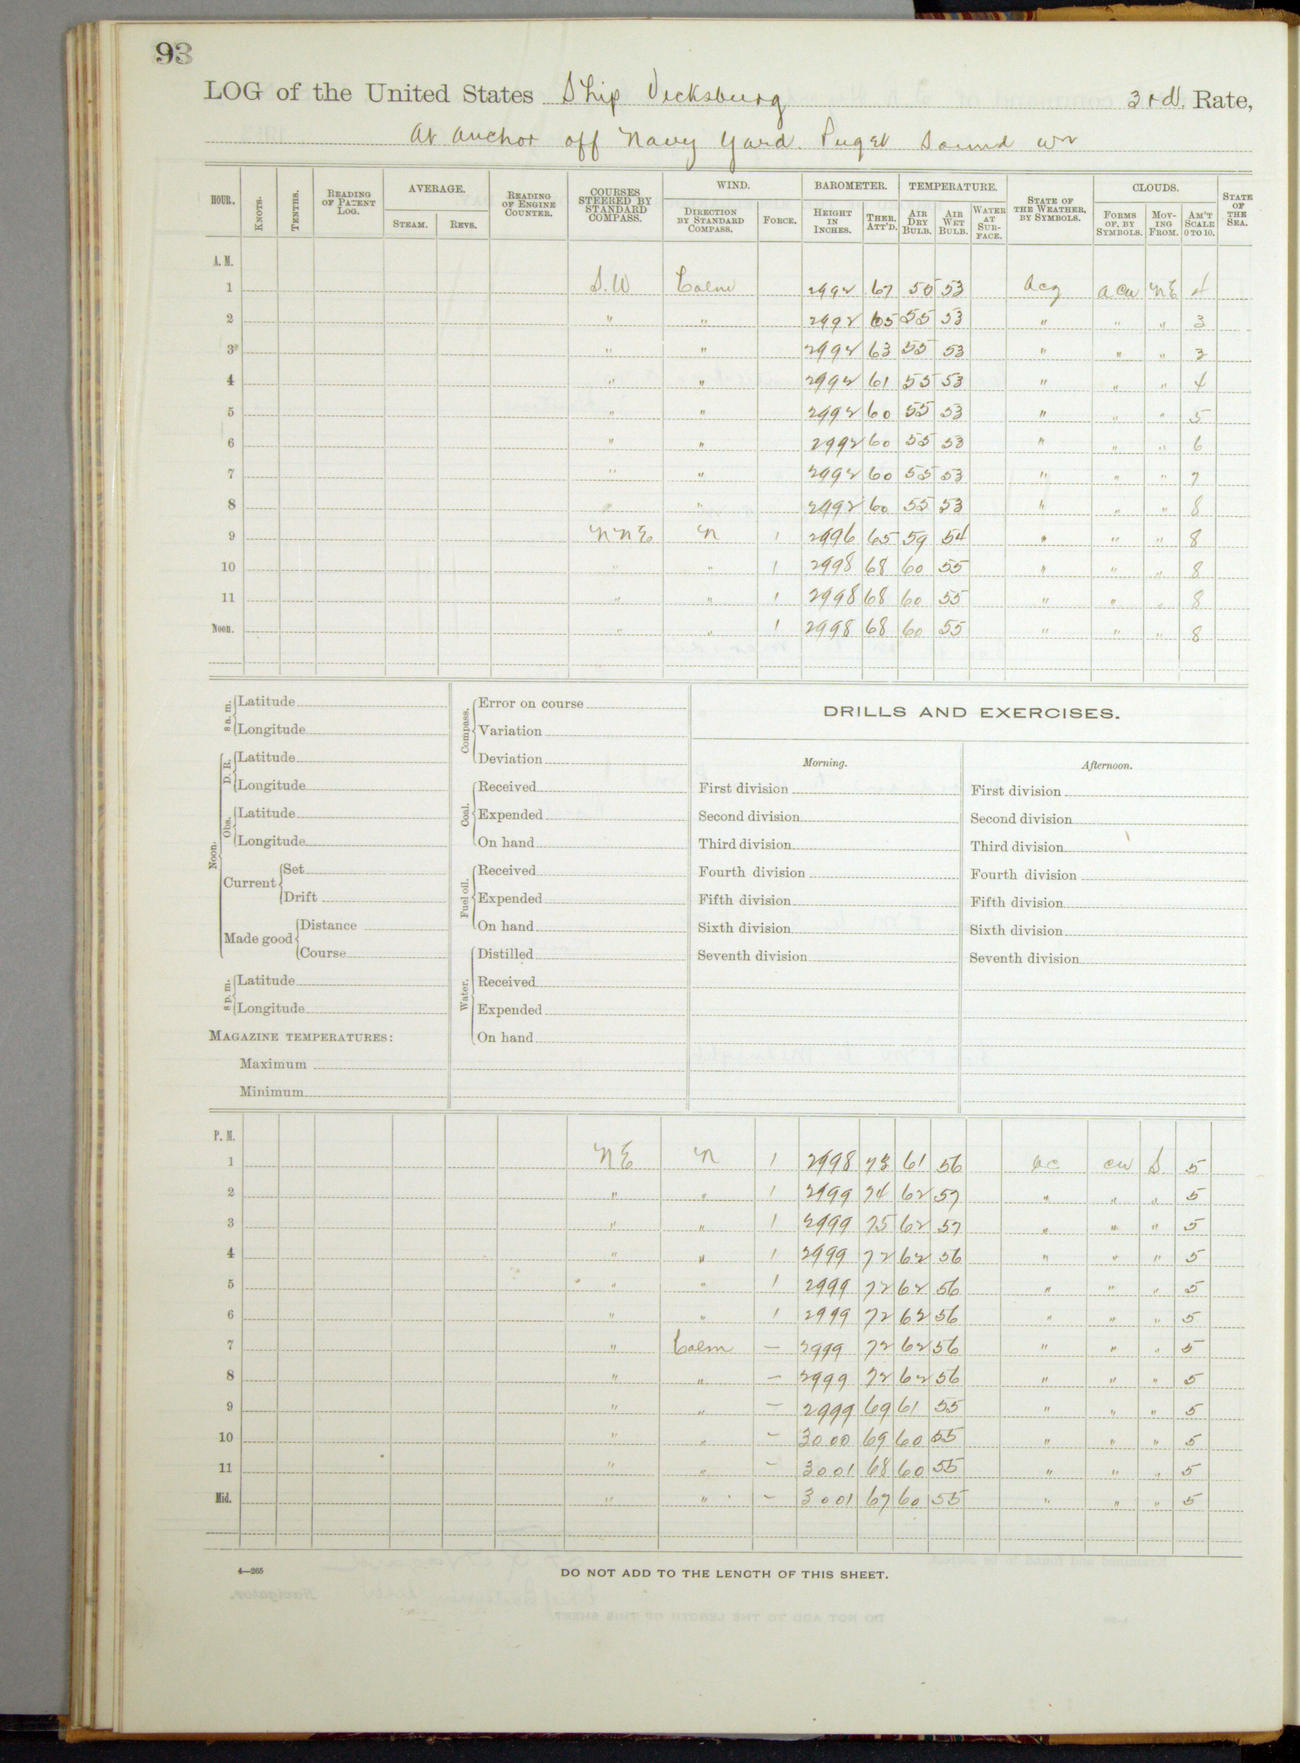 93
LOG of the United States Ship Vicksburg 3rd. Rate,
At anchor off Navy Yard. Puget Sound Wn
HOUR. KNOTS. TENTHS. READING OF PATENT LOG. AVERAGE. STEAM. REVS. READING OF ENGINE COUNTER. COURSES STEERED BY STANDARD COMPASS. WIND. DIRECTION BY STANDARD COMPASS. FORCE. BAROMETER. HEIGHT IN INCHES. THER. ATT'D. TEMPERATURE. AIR DRY BULB. AIR WET BULB. WATER AT SURFACE. STATE OF THE WEATHER, BY SYMBOLS. CLOUDS. FORMS OF, BY SYMBOLS. MOVING FROM. AM'T SCALE 0 TO 10. STATE OF THE SEA.
A. M.
1 S.W Calm 2992 67 55 53 acu NE 4
2 " " 2992 65 55 53 " " " 3
3 " " 2992 63 55 53 " " " 3
4 " " 2992 61 55 53 " " " 4
5 " " 2992 60 55 53 " " " 5
6 " " 2992 60 55 53 " " " 6
7 " " 2992 60 55 53 " " " 7
8 " " 2992 60 55 53 " " " 8
9 NNE N 1 2996 65 59 54 " " " 8
10 " " 1 2998 68 60 55 " " " 8
11 " " 1 2998 68 60 55 " " " 8
Noon. " " 1 2998 68 60 55 " " " 8
8 a. m. Latitude
Longitude
Noon. D. R. Latitude
Longitude
Obs. Latitude
Longitude
Current Set
Drift
Made good Distance
Course
8 p. m. Latitude
Longitude
MAGAZINE TEMPERATURES:
Maximum
Minimum
Compass. Error on course
Variation
Deviation
Coal. Received
Expended
On hand
Fuel oil. Received
Expended
On hand
Water. Distilled
Received
Expended
On hand
DRILLS AND EXERCISES.
Morning.
First division
Second division
Third division
Fourth division
Fifth division
Sixth division
Seventh division
Afternoon.
First division
Second division
Third division
Fourth division
Fifth division
Sixth division
Seventh division
P. M.
1 NE N 1 2998 73 61 56 bc cu S. 5
2 " " 1 2999 74 62 57 " " " 5
3 " " 1 2999 75 62 57 " " " 5
4 " " 1 2999 72 62 56 " " " 5
5 " " 1 2999 72 62 56 " " " 5
6 " " 1 2999 72 62 56 " " " 5
7 " Calm — 2999 72 62 56 " " " 5
8 " " — 2999 72 62 56 " " " 5
9 " " — 2999 69 61 55 " " " 5
10 " " — 3000 69 60 55 " " " 5
11 " " — 3001 68 60 55 " " " 5
Mid. " " — 3001 67 60 55 " " " 5
4—265
DO NOT ADD TO THE LENGTH OF THIS SHEET.